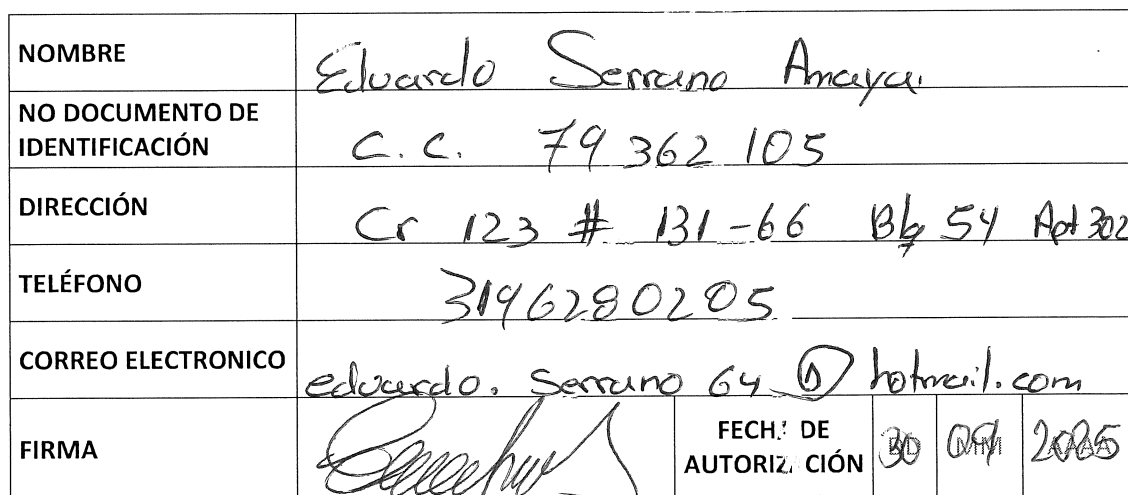 NOMBRE Eduardo Serrano Anaya.
NO DOCUMENTO DE
IDENTIFICACIÓN C.C. 79 362 105
DIRECCIÓN Cr 123 # 131-66 Blq 54 Apt 302
TELÉFONO 3196280205
CORREO ELECTRONICO eduardo.serrano64@hotmail.com
FIRMA FECHA DE
AUTORIZACIÓN 30 2025